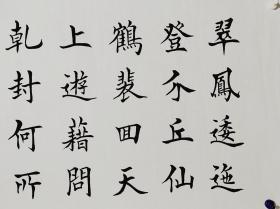 翠鳳逶迤
登介丘仙
鶴裴回天
上遊藉問
乹封何所